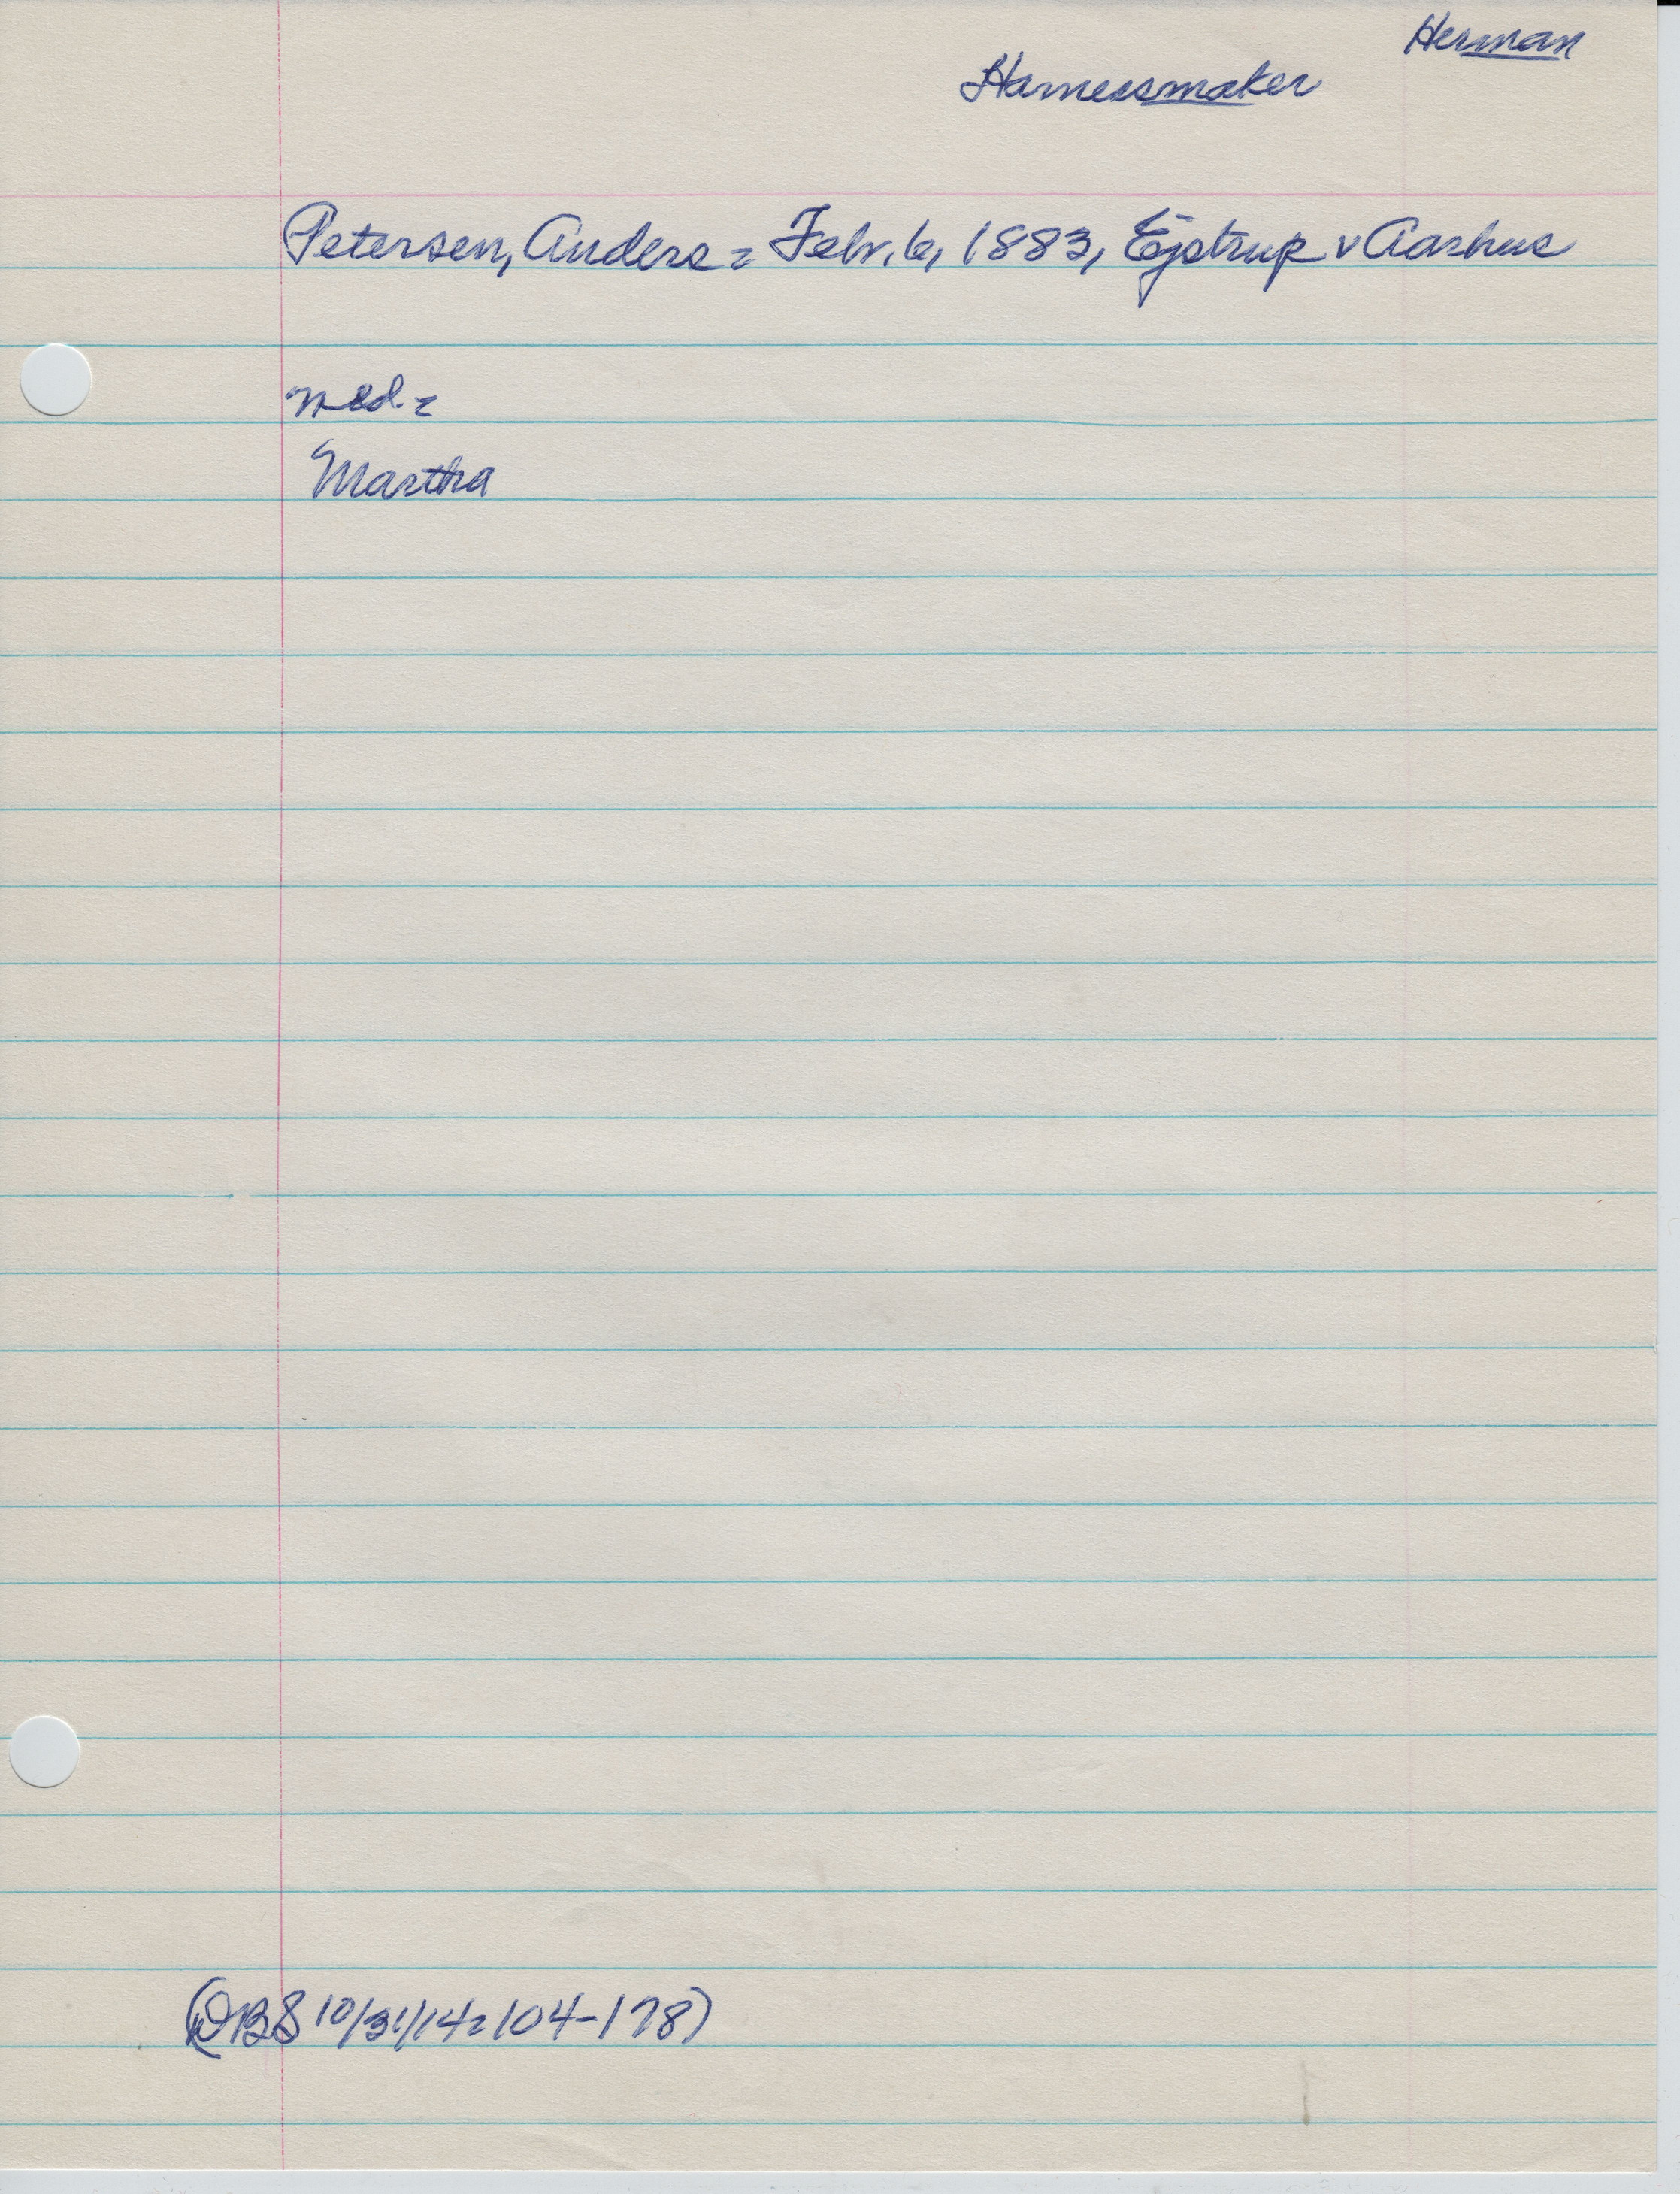 Herman
Harnessmaker
Petersen, Anders = Febr. 6, 1883, Ejstrup v Aarhus
med =
Martha
(DBS 10/31/14 = 104-178)